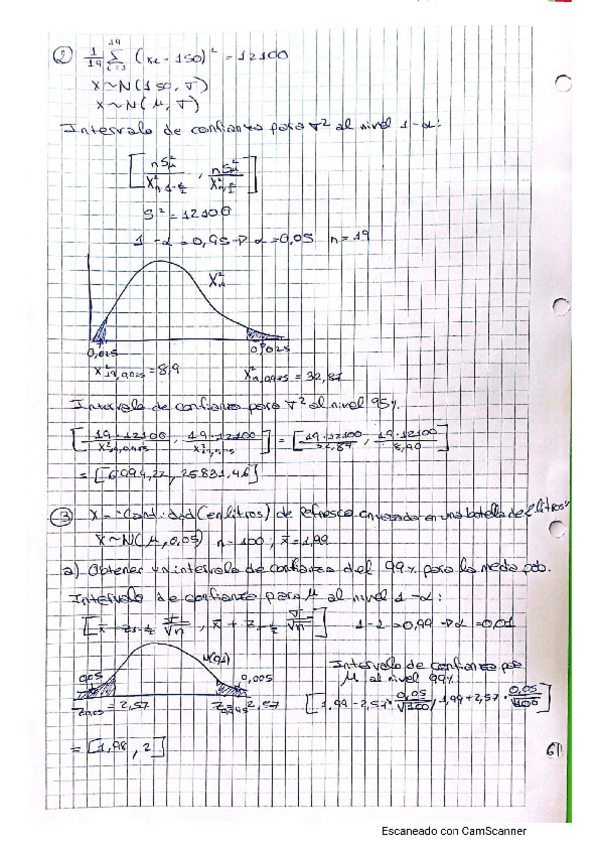 ② 1/19 Σ (xi - 150)² = 12100
i=1
19
X ~ N(150, σ)
X ~ N(μ, σ)
Intervalo de confianza para σ² al nivel 1-α:
[ nS²μ / χ²n,1-α/2 , nS²μ / χ²n,α/2 ]
S² = 12100
1-α = 0,95 → α = 0,05 n = 19
χ²n
0,025 0,025
χ²19,0,025 = 8,9 χ²n,0,975 = 32,87
Intervalo de confianza para σ² al nivel 95%
[ 19·12100 / χ²19,0,975 , 19·12100 / χ²19,0,025 ] = [ 19·12100 / 32,87 , 19·12100 / 8,90 ]
= [6994,22, 25831,46]
③ X = "Cantidad (en litros) de refresco envasada en una botella de 2 litros"
X ~ N(μ, 0,05) n = 100 ; x̄ = 1,99
a) Obtener un intervalo de confianza del 99% para la media pob.
Intervalo de confianza para μ al nivel 1-α:
[ x̄ - z1-α/2 σ/√n , x̄ + z1-α/2 σ/√n ] 1-α = 0,99 → α = 0,01
N(0,1)
0,005
= 2,57 = 2,57
Intervalo de confianza para
μ al nivel 99%
[ 1,99 - 2,57 · 0,05/√100 , 1,99 + 2,57 · 0,05/√100 ]
= [1,98, 2]
61
Escaneado con CamScanner